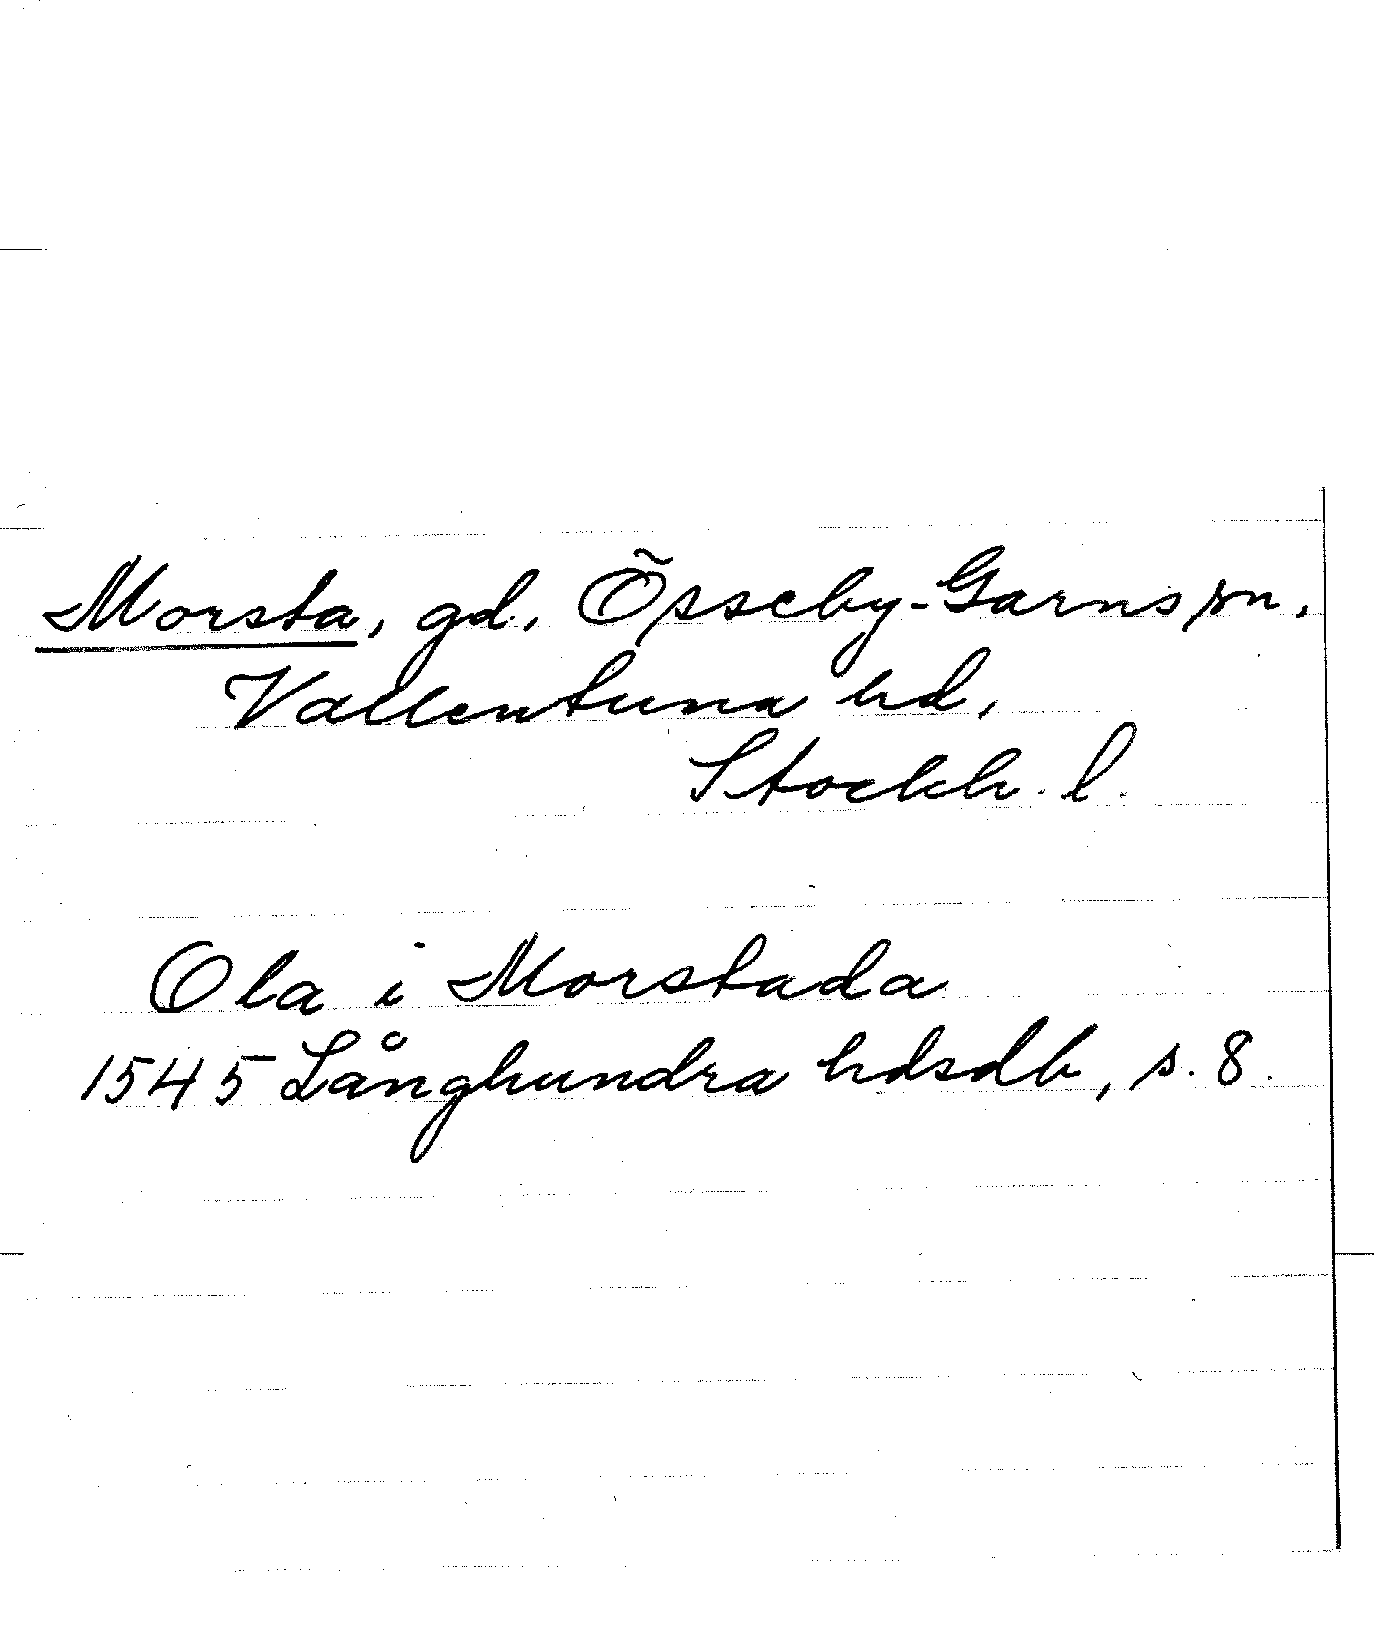 Morsta, gd, Össeby-Garns sn,
Vallentuna hd,
Stockh. l.
Ola i Morstada
1545 Långhundra hdsdb, s. 8.